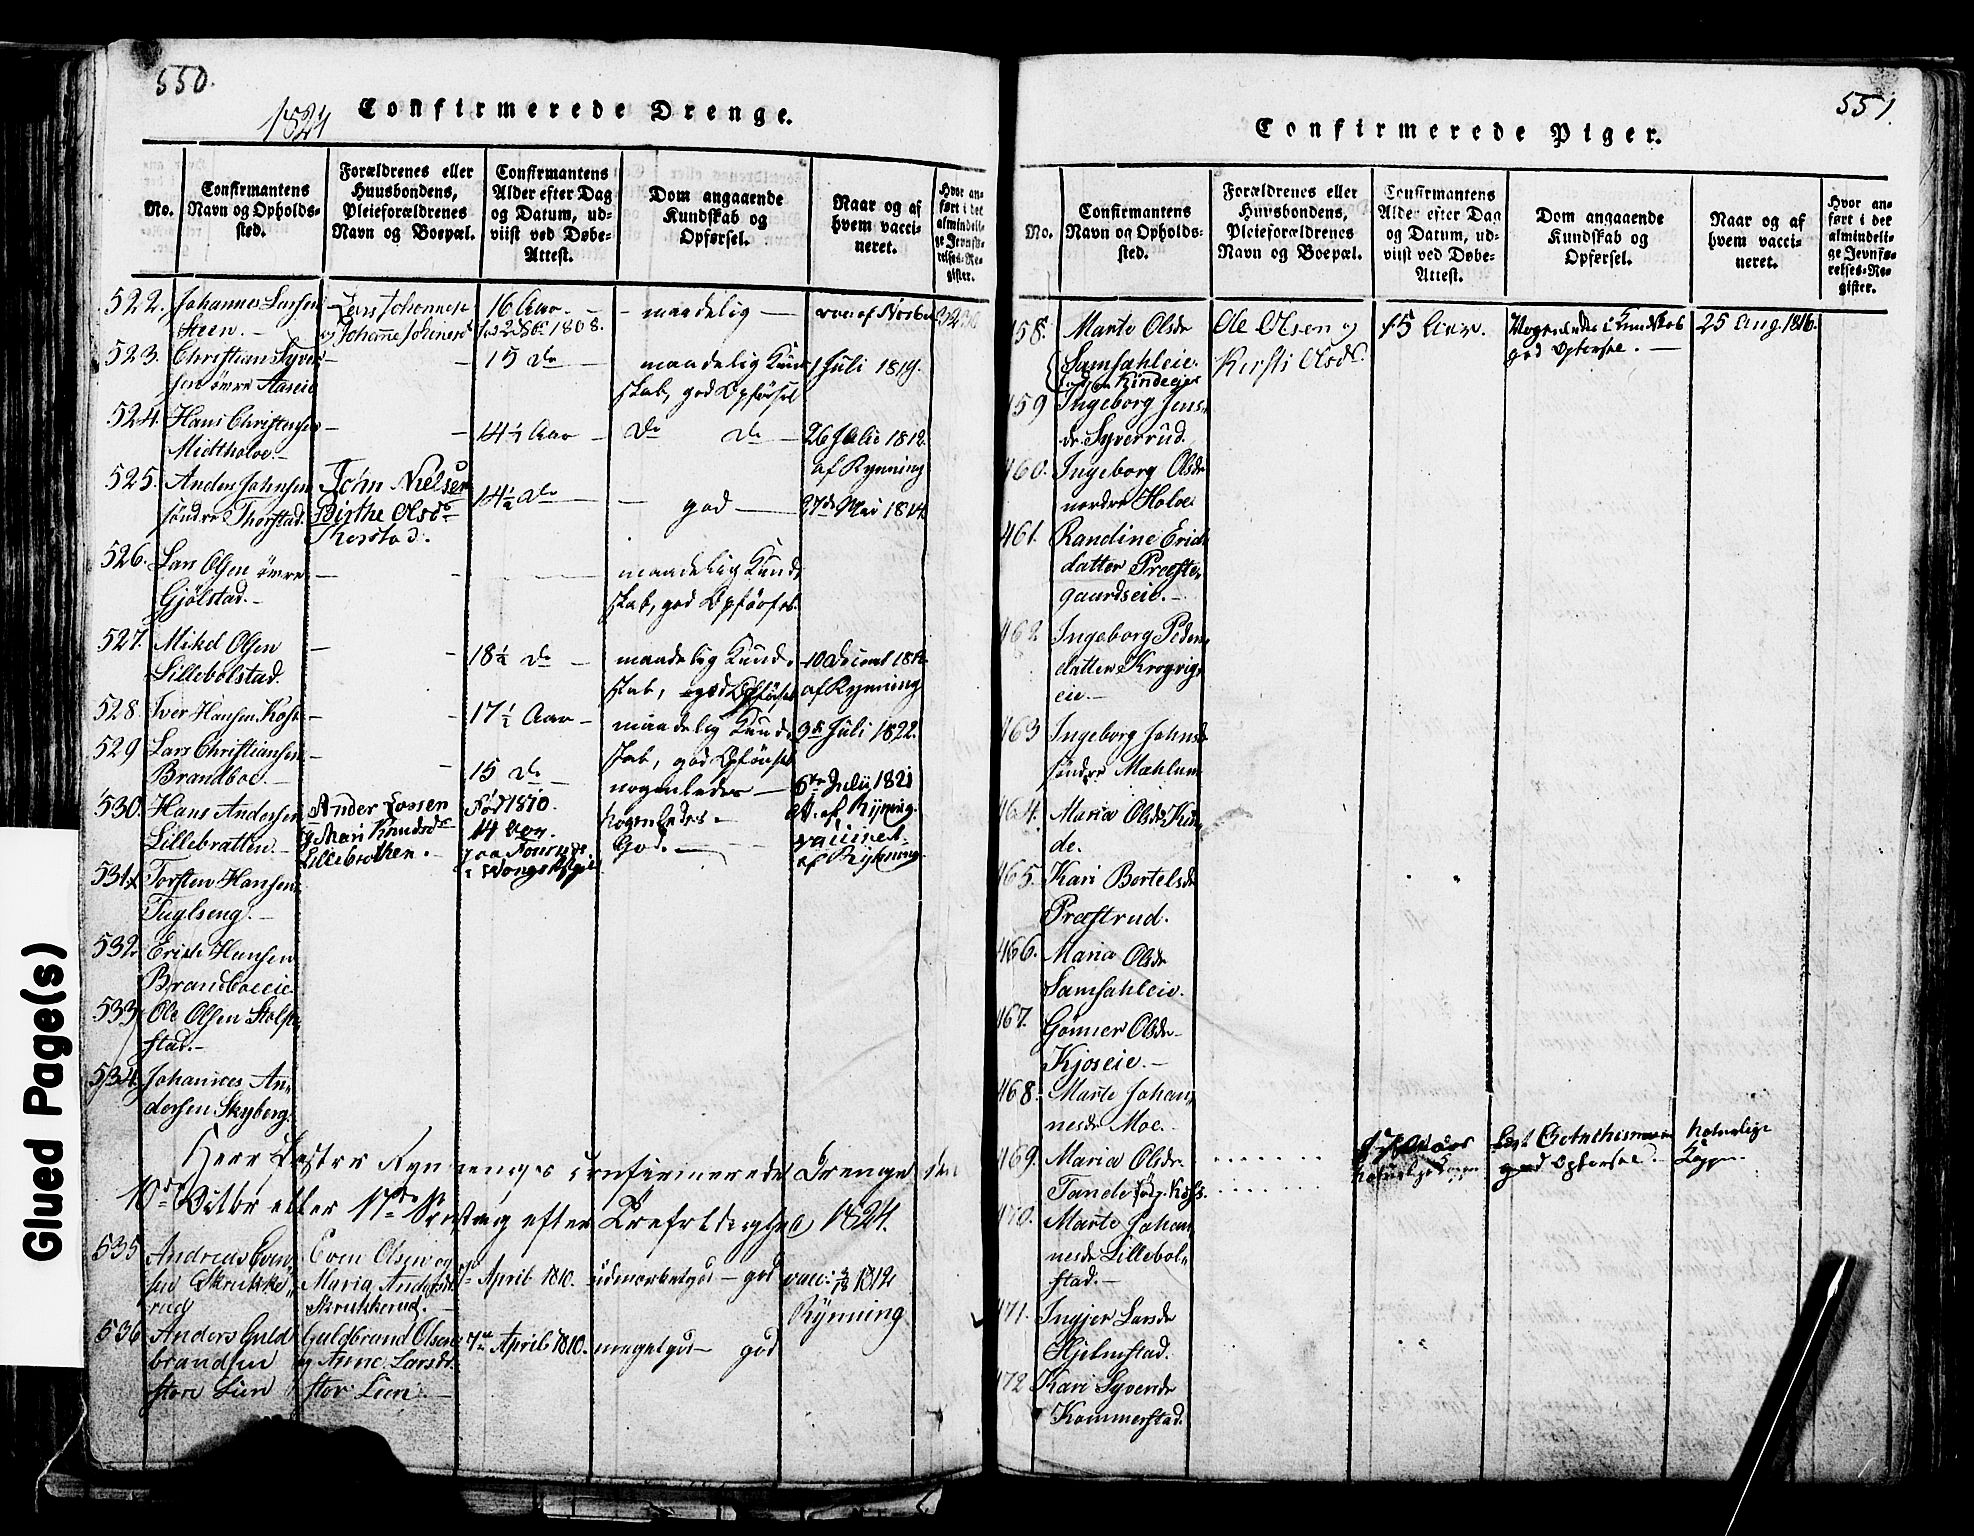 550.
1824
Confirmerede Drenge.
No.
Confirmantens
Navn og Opholds-
sted.
Forældrenes eller
Huusbondens,
Pleieforældrenes
Navn og Boepæl.
Confirmantens
Alder efter Dag
og Datum, ud-
viist ved Døbe-
Attest.
Dom angaaende
Kundskab og
Opførsel.
Naar og af
hvem vacci-
neret.
Hvor an-
ført i det
almindeli-
ge Jevnfø-
relses-Re-
gister.
522. Johannes Larsen
Steen. -
16 Aar
1808.
maadelig
523. Christian Syver-
sen övre Aaseie
15 do
maadelig Kund-
skab, god Opførsel
1 Juli 1819.
524. Hans Christensen
Midtholve. -
14½ Aar
do do
26 Julie 1812.
af Rynning
525. Anders Johnsen
söndre Thorstad.
John Nielsen
Birthe Olsd
14½ do
god
27de Mai 1814
526. Lars Olsen övre
Gjölstad. -
maadelig Kund-
skab, god Opførsel.
527. Mikel Olsen
Lillebolstad.
18½ do
maadelig Kund-
skab, god Opførsel
10 Decembr 1812
af Rynning
528. Iver Hansen Kost
17½ Aar -
maadelig Kund-
skab, god Opførsel
9de Juli 1822.
529 Lars Christiansen
Brandboe. -
15 do
nogenledes
6te July 1821
af Rynning.
530. Hans Andersen
Lillebratten. -
Ander Larsen
og Mari Knudsdr
Lillebrothen.
Fød 1810.
14 Aar.
nogenledes. -
God.
vaccinet.
af Rynning
531. Torsten Hansen
Fuglseng. -
532. Erik Hansen
Brandboeeie
533. Ole Olsen Stolpe-
stad. -
534. Johannes An-
dersen Skyberg.
Herr Pastor Rynnings confirmerede Drenge den
10de Octbr eller 17de Søndag efter Trefoldighed 1824.
535 Andreas Even-
sen Skrukke-
rud
Even Olsen og
Maria Andersd
Skrukkerud. -
April 1810.
udmærket god - god
vacc: 1812
Rynning
536 Anders Guld-
brandsen
store Lien
Guldbrand Olsen
og Anne Larsdr
stor Lien -
7de April 1810.
meget god - god
551.
Confirmerede Piger.
No.
Confirmantens
Navn og Opholds-
sted.
Forældrenes eller
Huusbondens,
Pleieforældrenes
Navn og Boepæl.
Confirmantens
Alder efter Dag
og Datum, ud-
viist ved Døbe-
Attest.
Dom angaaende
Kundskab og
Opførsel.
Naar og af
hvem vacci-
neret.
Hvor an-
ført i det
almindeli-
ge Jevnfø-
relses-Re-
gister.
458. Marte Olsdr
Samsahleie.
Ole Olsen og
Kersti Olsdr.
15 Aar.
Nogenledes i Kundskab
god Opførsel. -
25 Aug. 1816.
459 Ingeborg Jens-
dr. Syverrud.
460. Ingeborg Olsdr
nordre Holve
461. Randine Erich-
datter Præste-
gaardseie. -
462 Ingeborg Peder-
datter Krogvig-
eie. -
463 Ingeborg Johnsdr
söndre Mæhlum
464. Maria Olsdr Kin-
de.
465. Kari Bertelsdr
Præstrud.
466. Maria Olsdr
Samsahleie.
467. Gönner Olsdr
Kjoseie. -
468. Marte Johan-
nesdr Moe. -
469. Maria Olsdr.
god Opførsel. -
naturlige
Kopper.
470. Marte Johan-
nesdr Lillebol-
stad. -
471. Ingjer Larsdr
Hjelmstad.
472 Kari Syversdr
Kommerstad.
Glued Page(s)